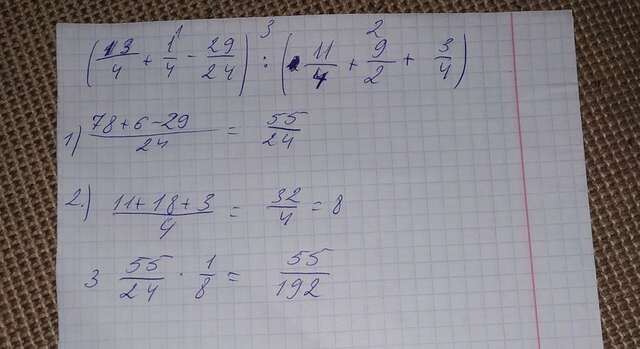 1 3 2
(13/4 + 1/4 - 29/24) : (11/4 + 9/2 + 3/4)
1) 78+6-29/24 = 55/24
2.) 11+18+3/4 = 32/4 = 8
3 55/24 · 1/8 = 55/192